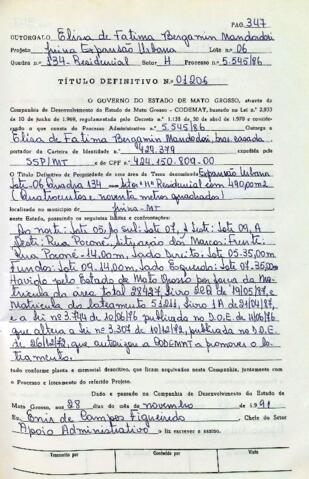 PAG. 347
OUTORGADO Elisa de Fátima Bergamin Mandadori
Projeto Juina Expansão Urbana Lote nº 06
Quadra nº 134-Residencial Setor H Processo nº 5.545/86
TÍTULO DEFINITIVO Nº 01206
O GOVERNO DO ESTADO DE MATO GROSSO, através da
Companhia de Desenvolvimento do Estado de Mato Grosso - CODEMAT, baseado na Lei n.
de 10 de junho de 1969, regulamentada pelo Decreto n.º 1.138 de 30 de abril de 1970 e conside-
rando o que consta do Processo Administrativo nº 5.545/86 Outorga a
Elisa de Fátima Bergamin Mandadori, bras. casada
portador da Carteira de Identidade nº 422.379 expedida pela
SSP/MT e do CPF nº 424.150.809-00
O Título Definitivo de Propriedade de uma área de Terras denominada Expansão Urbana
Lote 06 Quadra 134 Setor "H" Residencial com 490,00m2
(Quatrocentos e noventa metros quadrados)
localizada no município de Juina-MT
neste Estado, passando os seguintes limites e confrontações:
Ao norte: Lote 05, Ao sul: Lote 07, A Leste: Lote 09, A
Oeste: Rua Poconé, Situação dos Marcos: Frente:
Rua Poconé - 14,00m, Lado Direito: Lote 05-35,00m
Fundos: Lote 09-14,00m, Lado Esquerdo: Lote 07-35,00m
Havido pelo Estado de Mato Grosso por força da Ma-
trícula da área total 28427, Livro 2CB de 19/05/87, e
Matrícula do loteamento 51211, Livro 1A de 21/04/87,
e a Lei nº 3.770 de 10/06/76 publicado no D.O.E. de 11/06/76
que altera a Lei nº 3.307 de 10/12/72, publicada no D.O.E.
de 26/12/72, que autorizou a CODEMAT a promover o lo-
teamento.
tudo conforme planta e memorial descritivo, que ficam arquivados nesta Companhia, juntamente com
o Processo e loteamento do referido Projeto.
Dado e passado na Companhia de Desenvolvimento do Estado de
Mato Grosso, aos 28 dias do mês de novembro de 1991
Eu, Enir de Campos Figueiredo, Chefe do Setor
Apoio Administrativo o fiz escrever e assino.
Transcrito por Conferido por Visto